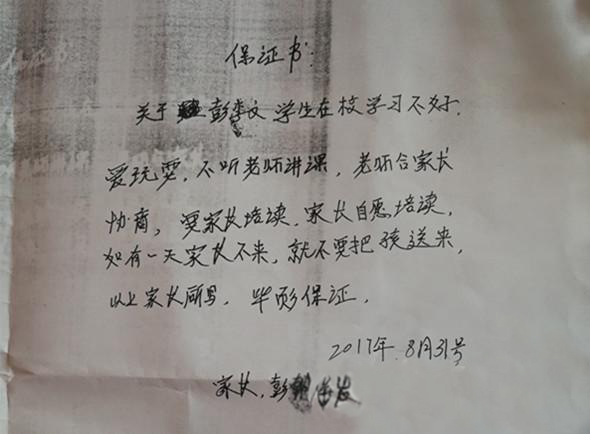 保证书:
关于 彭李文 学生在校学习不好.
爱玩耍, 不听老师讲课, 老师合家长
协商, 要家长培读. 家长自愿培读,
如有一天家长不来, 就不要把孩送来,
以上家长所写, 毕形保证.
2017年.8月31号
家长, 彭